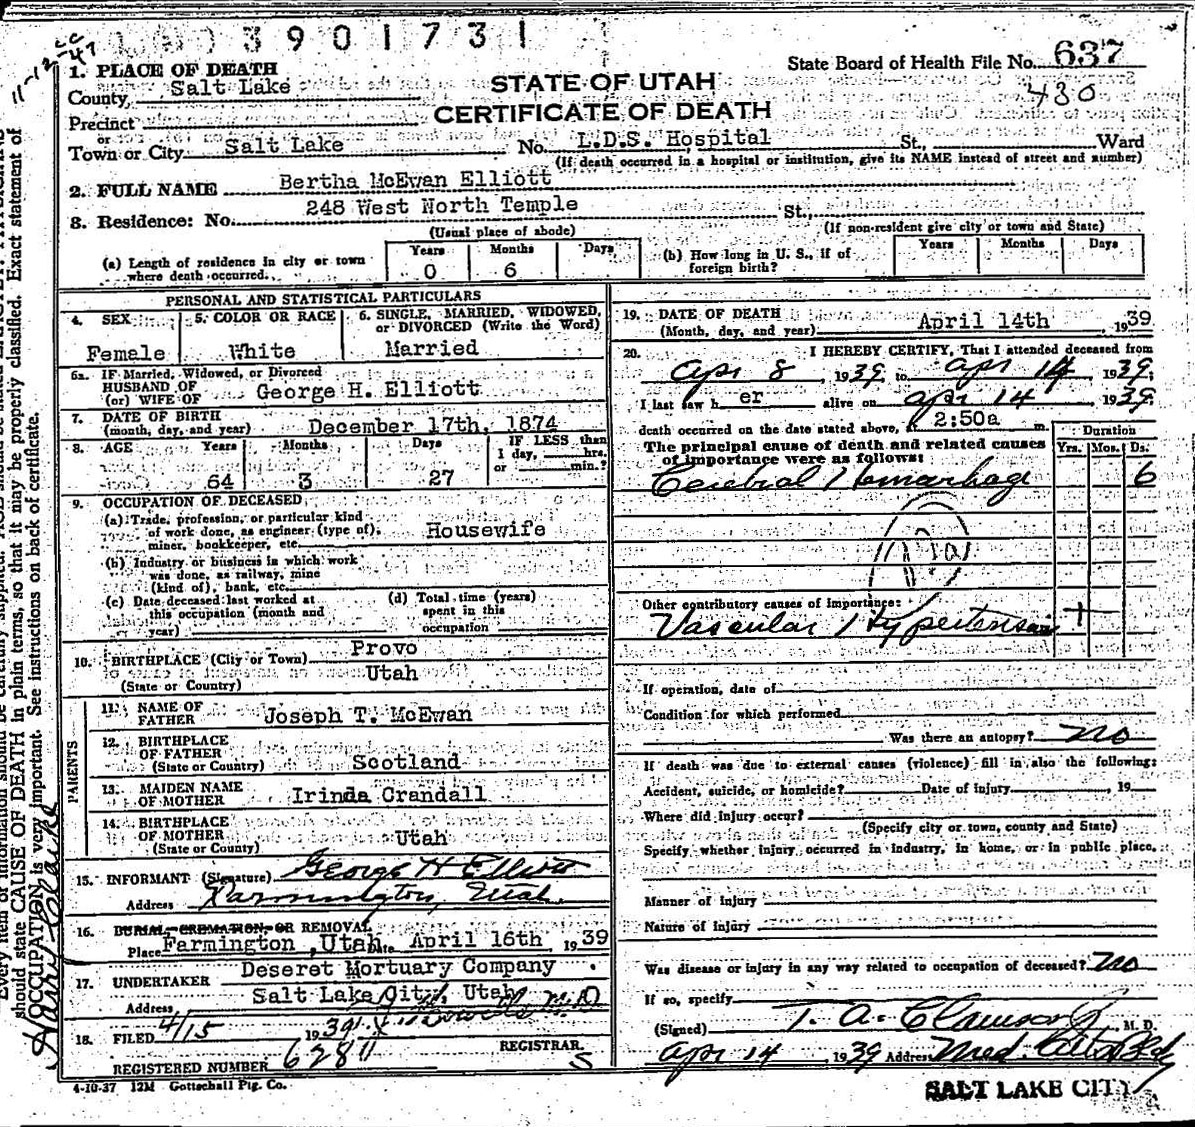 3901731
11-12-47
State Board of Health File No. 637
430
1. PLACE OF DEATH
County Salt Lake
STATE OF UTAH
CERTIFICATE OF DEATH
Precinct
or
Town or City Salt Lake No. L.D.S. Hospital St., Ward
(If death occurred in a hospital or institution, give its NAME instead of street and number)
2. FULL NAME Bertha McEwan Elliott
3. Residence: No. 248 West North Temple St.,
(Usual place of abode) (If non-resident give city or town and State)
(a) Length of residence in city or town where death occurred. Years 0 Months 6 Days
(b) How long in U. S., if of foreign birth? Years Months Days
PERSONAL AND STATISTICAL PARTICULARS
4. SEX Female
5. COLOR OR RACE White
6. SINGLE, MARRIED, WIDOWED, or DIVORCED (Write the Word) Married
6a. IF Married, Widowed, or Divorced
HUSBAND OF
(or) WIFE OF George H. Elliott
7. DATE OF BIRTH
(month, day, and year) December 17th, 1874
8. AGE Years 64 Months 3 Days 27 IF LESS than 1 day, hrs. or min.?
9. OCCUPATION OF DECEASED
(a) Trade, profession, or particular kind
of work done, as engineer (type of),
miner, bookkeeper, etc. Housewife
(b) Industry or business in which work
was done, as railway, mine
(kind of), bank, etc.
(c) Date deceased last worked at
this occupation (month and
year)
(d) Total time (years)
spent in this
occupation
10. BIRTHPLACE (City or Town) Provo
(State or Country) Utah
PARENTS
11. NAME OF
FATHER Joseph T. McEwan
12. BIRTHPLACE
OF FATHER
(State or Country) Scotland
13. MAIDEN NAME
OF MOTHER Irinda Crandall
14. BIRTHPLACE
OF MOTHER
(State or Country) Utah
15. INFORMANT (Signature) George H Elliott
Address Farmington, Utah.
16. BURIAL, CREMATION, OR REMOVAL
Place Farmington, Utah Date April 16th 1939
17. UNDERTAKER Deseret Mortuary Company
Address Salt Lake City, Utah
18. FILED 4/15 1939 M.D.
REGISTRAR.
REGISTERED NUMBER 628
S
4-10-37 12M Gottschall Ptg. Co.
19. DATE OF DEATH
(Month, day, and year) April 14th, 1939
20. I HEREBY CERTIFY, That I attended deceased from
Apr 8, 1939, to Apr 14 1939;
I last saw her alive on Apr 14 1939;
death occurred on the date stated above, at 2:50a m.
Duration
The principal cause of death and related causes
of importance were as follows: Yrs. Mos. Ds.
Cerebral Hemorrhage 6
Other contributory causes of importance:
Vascular Hypertension +
If operation, date of
Condition for which performed
Was there an autopsy? no
If death was due to external causes (violence) fill in also the following:
Accident, suicide, or homicide? Date of injury, 19
Where did injury occur?
(Specify city or town, county and State)
Specify whether injury occurred in industry, in home, or in public place.
Manner of injury
Nature of injury
Was disease or injury in any way related to occupation of deceased? no
If so, specify
(Signed) T. A. Clawson Jr, M. D.
Apr 14, 1939 Address Med. Arts Bldg
SALT LAKE CITY
should state CAUSE OF DEATH in plain terms, so that it may be properly classified. Exact statement of
OCCUPATION is very important. See instructions on back of certificate.